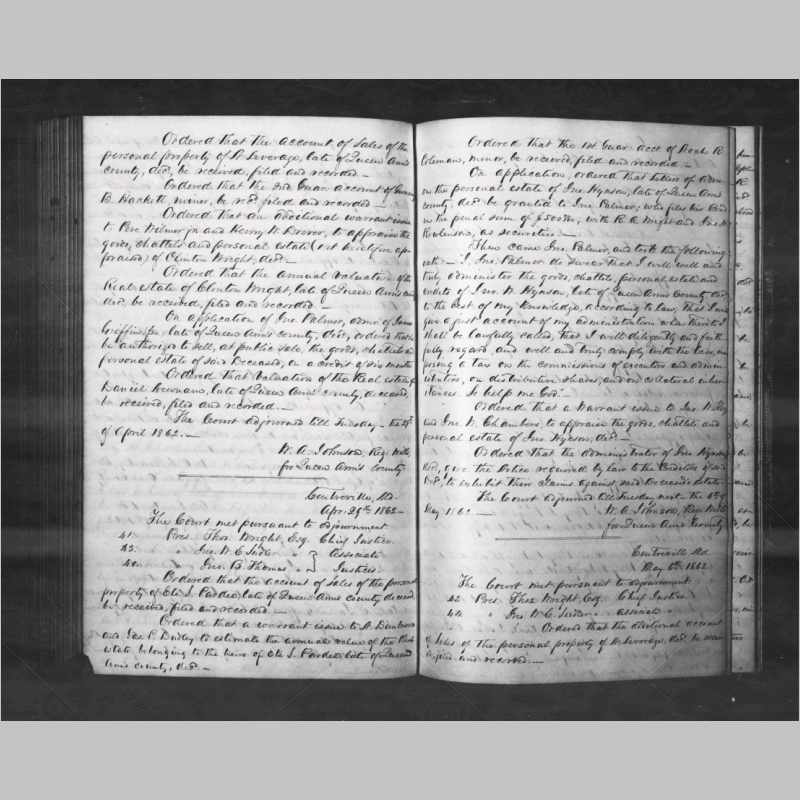 Ordered that the account of Sales of the
personal property of W. Leverage, late of Queen Ann's
county, decd, be received, filed and recorded.—
Ordered that the 2nd Guar account of
B. Hackett, minor, be recd, filed and recorded.—
Ordered that an additional warrant issue
to Pere Wilmer jr and Henry W. to appraise the
goods, chattels and personal estate (not heretofore ap-
praised) of Clinton Wright, decd.—
Ordered that the annual valuation of the
Real estate of Clinton Wright, late of Queen Ann's
decd, be received, filed and recorded.—
On application of Jno. Palmer, admr of James
Griffin late of Queen Ann's county, decd, ordered that he
be authorized to sell, at public sale, the goods, chattels &
personal estate of said deceased, on a credit of six months
Ordered that valuation of the Real estate of
Daniel Newnam, late of Queen Ann's county, deceased,
be received, filed and recorded.—
The Court adjourned till Tuesday— the 29th
of April 1862.—
W. A. Johnson, Reg. Wills
for Queen Ann's County
Centreville, Md—
Apr. 29th 1862—
The Court met pursuant to adjournment
41. Pres. Thos. Wright, Esq. Chief Justice.
43. " Jno. W. E. Sudler " } Associate
40. " Jno. B. Thomas " } Justices.
Ordered that the account of sales of the personal
property of late of Queen Ann's county deceased
be received, filed and recorded.—
Ordered that a warrant issue to
and Jas. P. Dudley to estimate the annual value of the Real
estate, belonging to the heirs of late of Queen
Ann's county, decd.—
Ordered that the 1st Guar acct of R
Coleman, minor, be received, filed and recorded.—
On application, ordered that letters of admn
on the personal estate of Jno. Hynson, late of Queen Ann's
county decd be granted to Jno. Palmer; who files his bond
in the penal sum of with R. A. Wright and Jno. W.
as securities.—
Then came Jno. Palmer, and took the following
oath:— I, Jno. Palmer do swear that I will well and
truly administer the goods, chattels, personal estate and
credits of Jno. Hynson, late of Queen Ann's County decd
to the best of my knowledge, according to law; that I will
give a just account of my administration when thereto I
shall be lawfully called, that I will diligently and faith-
fully regard, and well and truly comply with the law, im-
posing a tax on the commissions of executors and admin-
istrators, on distributive shares, and on collateral inher-
itances. So help me God."
Ordered that a Warrant issue to Jno. W.
and Jno. W. Chambers, to appraise the goods, chattels and
personal estate of Jno. Hynson, decd.—
Ordered that the administrator of Jno. Hynson
decd, give the notice required by law to the creditors of said
decd, to exhibit their claims against said deceased's estate.
The Court adjourned till Tuesday next the 6th of
May 1862.— W. A. Johnson, Reg. Wills
for Queen Ann's County
Centreville Md.
May 6th, 1862.
The Court met pursuant to adjournment.
42. Pres. Thos. Wright Esq. Chief Justice
44. " Jno. W. E. Sudler " associate "
Ordered that the additional account
of Sales of the personal property of W. Leverage, decd, be received
filed and recorded.—